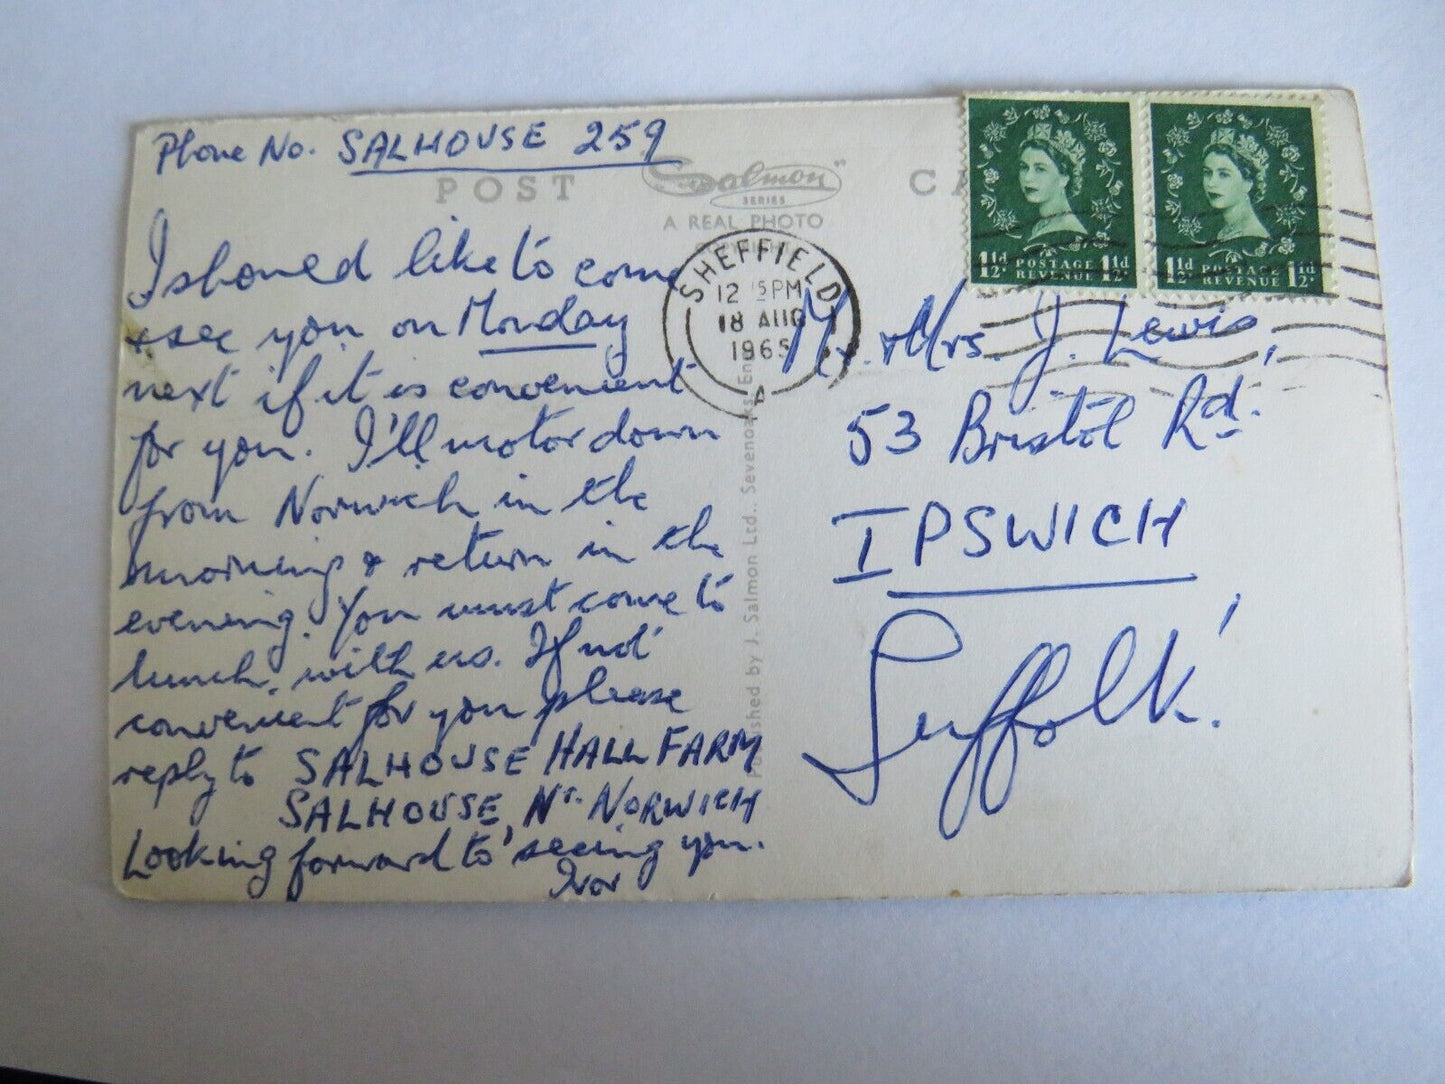 Phone No. SALHOUSE 259
POST CA
Salmon
SERIES
A REAL PHOTO
I should like to come
& see you on Monday
next if it is convenient
for you. I'll motor down
from Norwich in the
morning & return in the
evening. You must come to
lunch, with us. If not
convenient for you please
reply to SALHOUSE HALL FARM
SALHOUSE, Nr. NORWICH
Looking forward to seeing you.
Ivor
SHEFFIELD
12 15 PM
18 AUG
1965
A
Published by J. Salmon Ltd., Sevenoaks, Eng
1½d POSTAGE REVENUE 1½d
1½d POSTAGE REVENUE 1½d
Mr. & Mrs. J. Lewis,
53 Bristol Rd.
IPSWICH
Suffolk.